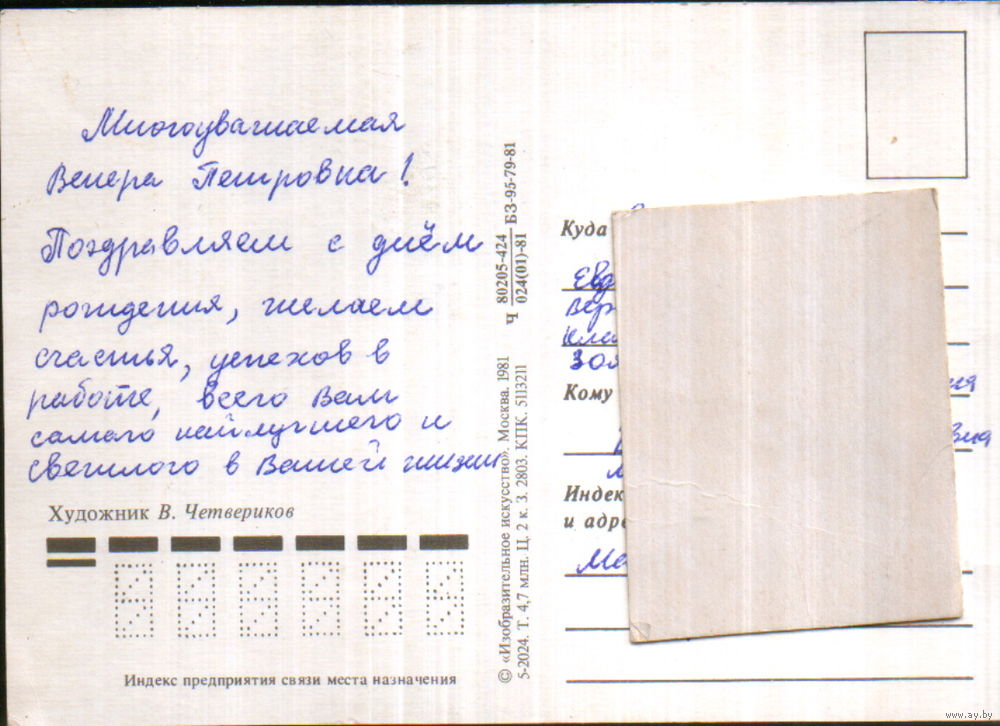 Многоуважаемая
Венера Петровна!
Поздравляем с днём
рождения, желаем
счастья, успехов в
работе, всего Вам
самого наилучшего и
светлого в Вашей жизни
Художник В. Четвериков
Индекс предприятия связи места назначения
© «Изобразительное искусство». Москва. 1981
5-2024. Т. 4,7 млн. Ц. 2 к. З. 2803. КПК. 5113211
Ч 80205-424 БЗ-95-79-81
024(01)-81
Куда
Кому
Индек
и адре
www.ay.by